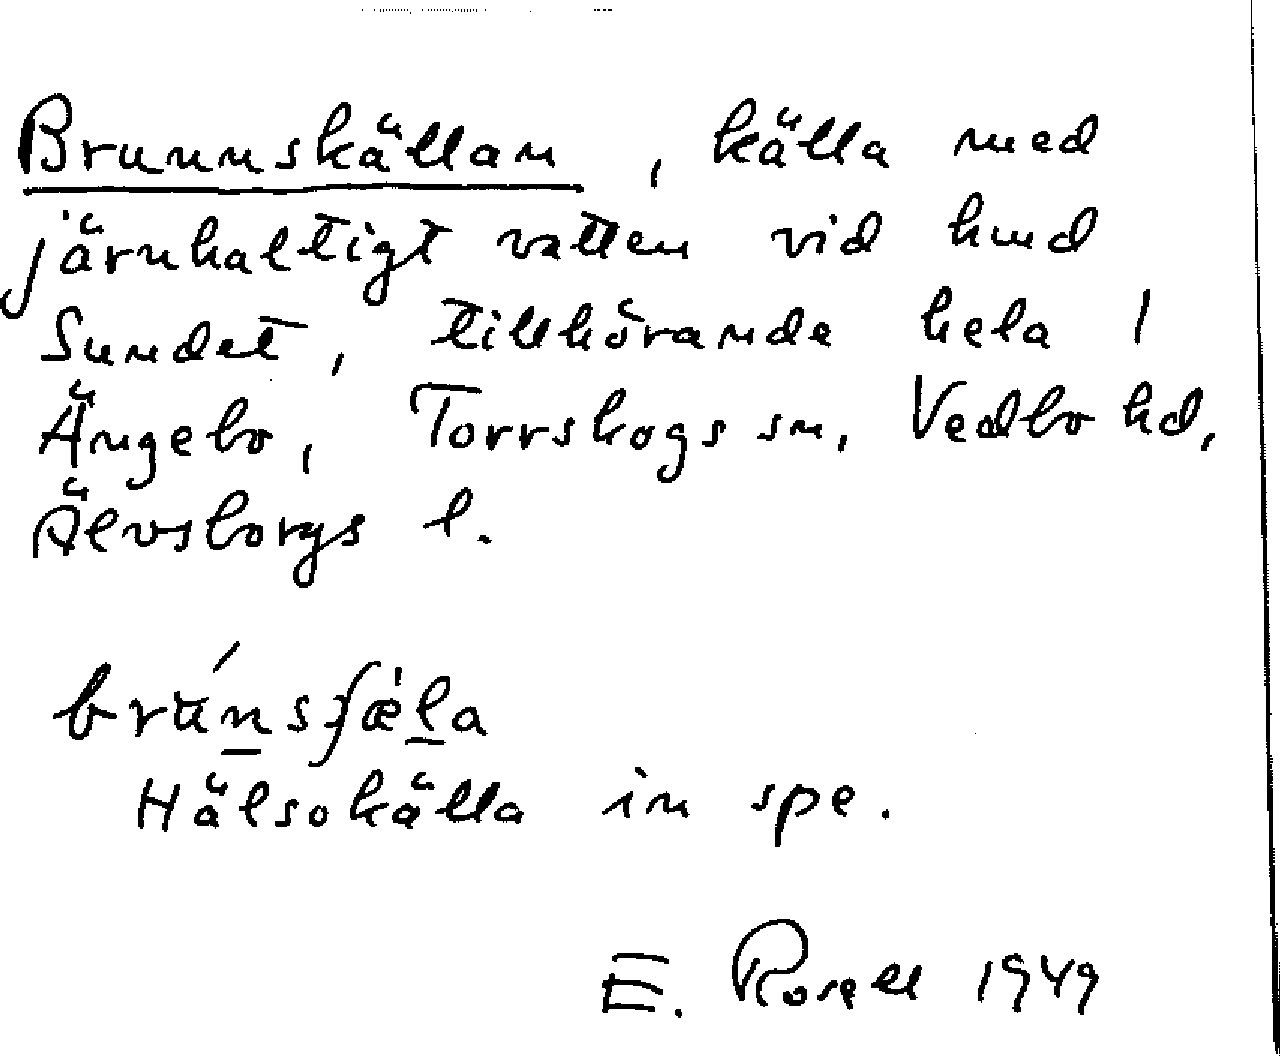 Brunnskällan, källa med
järnhaltigt vatten vid hmd
Sundet, tillhörande hela 1
Ängebo, Torrskogs sn, Vedbo hd,
Älvsborgs l.
Hälsokälla in spe.
E. Rosell 1949